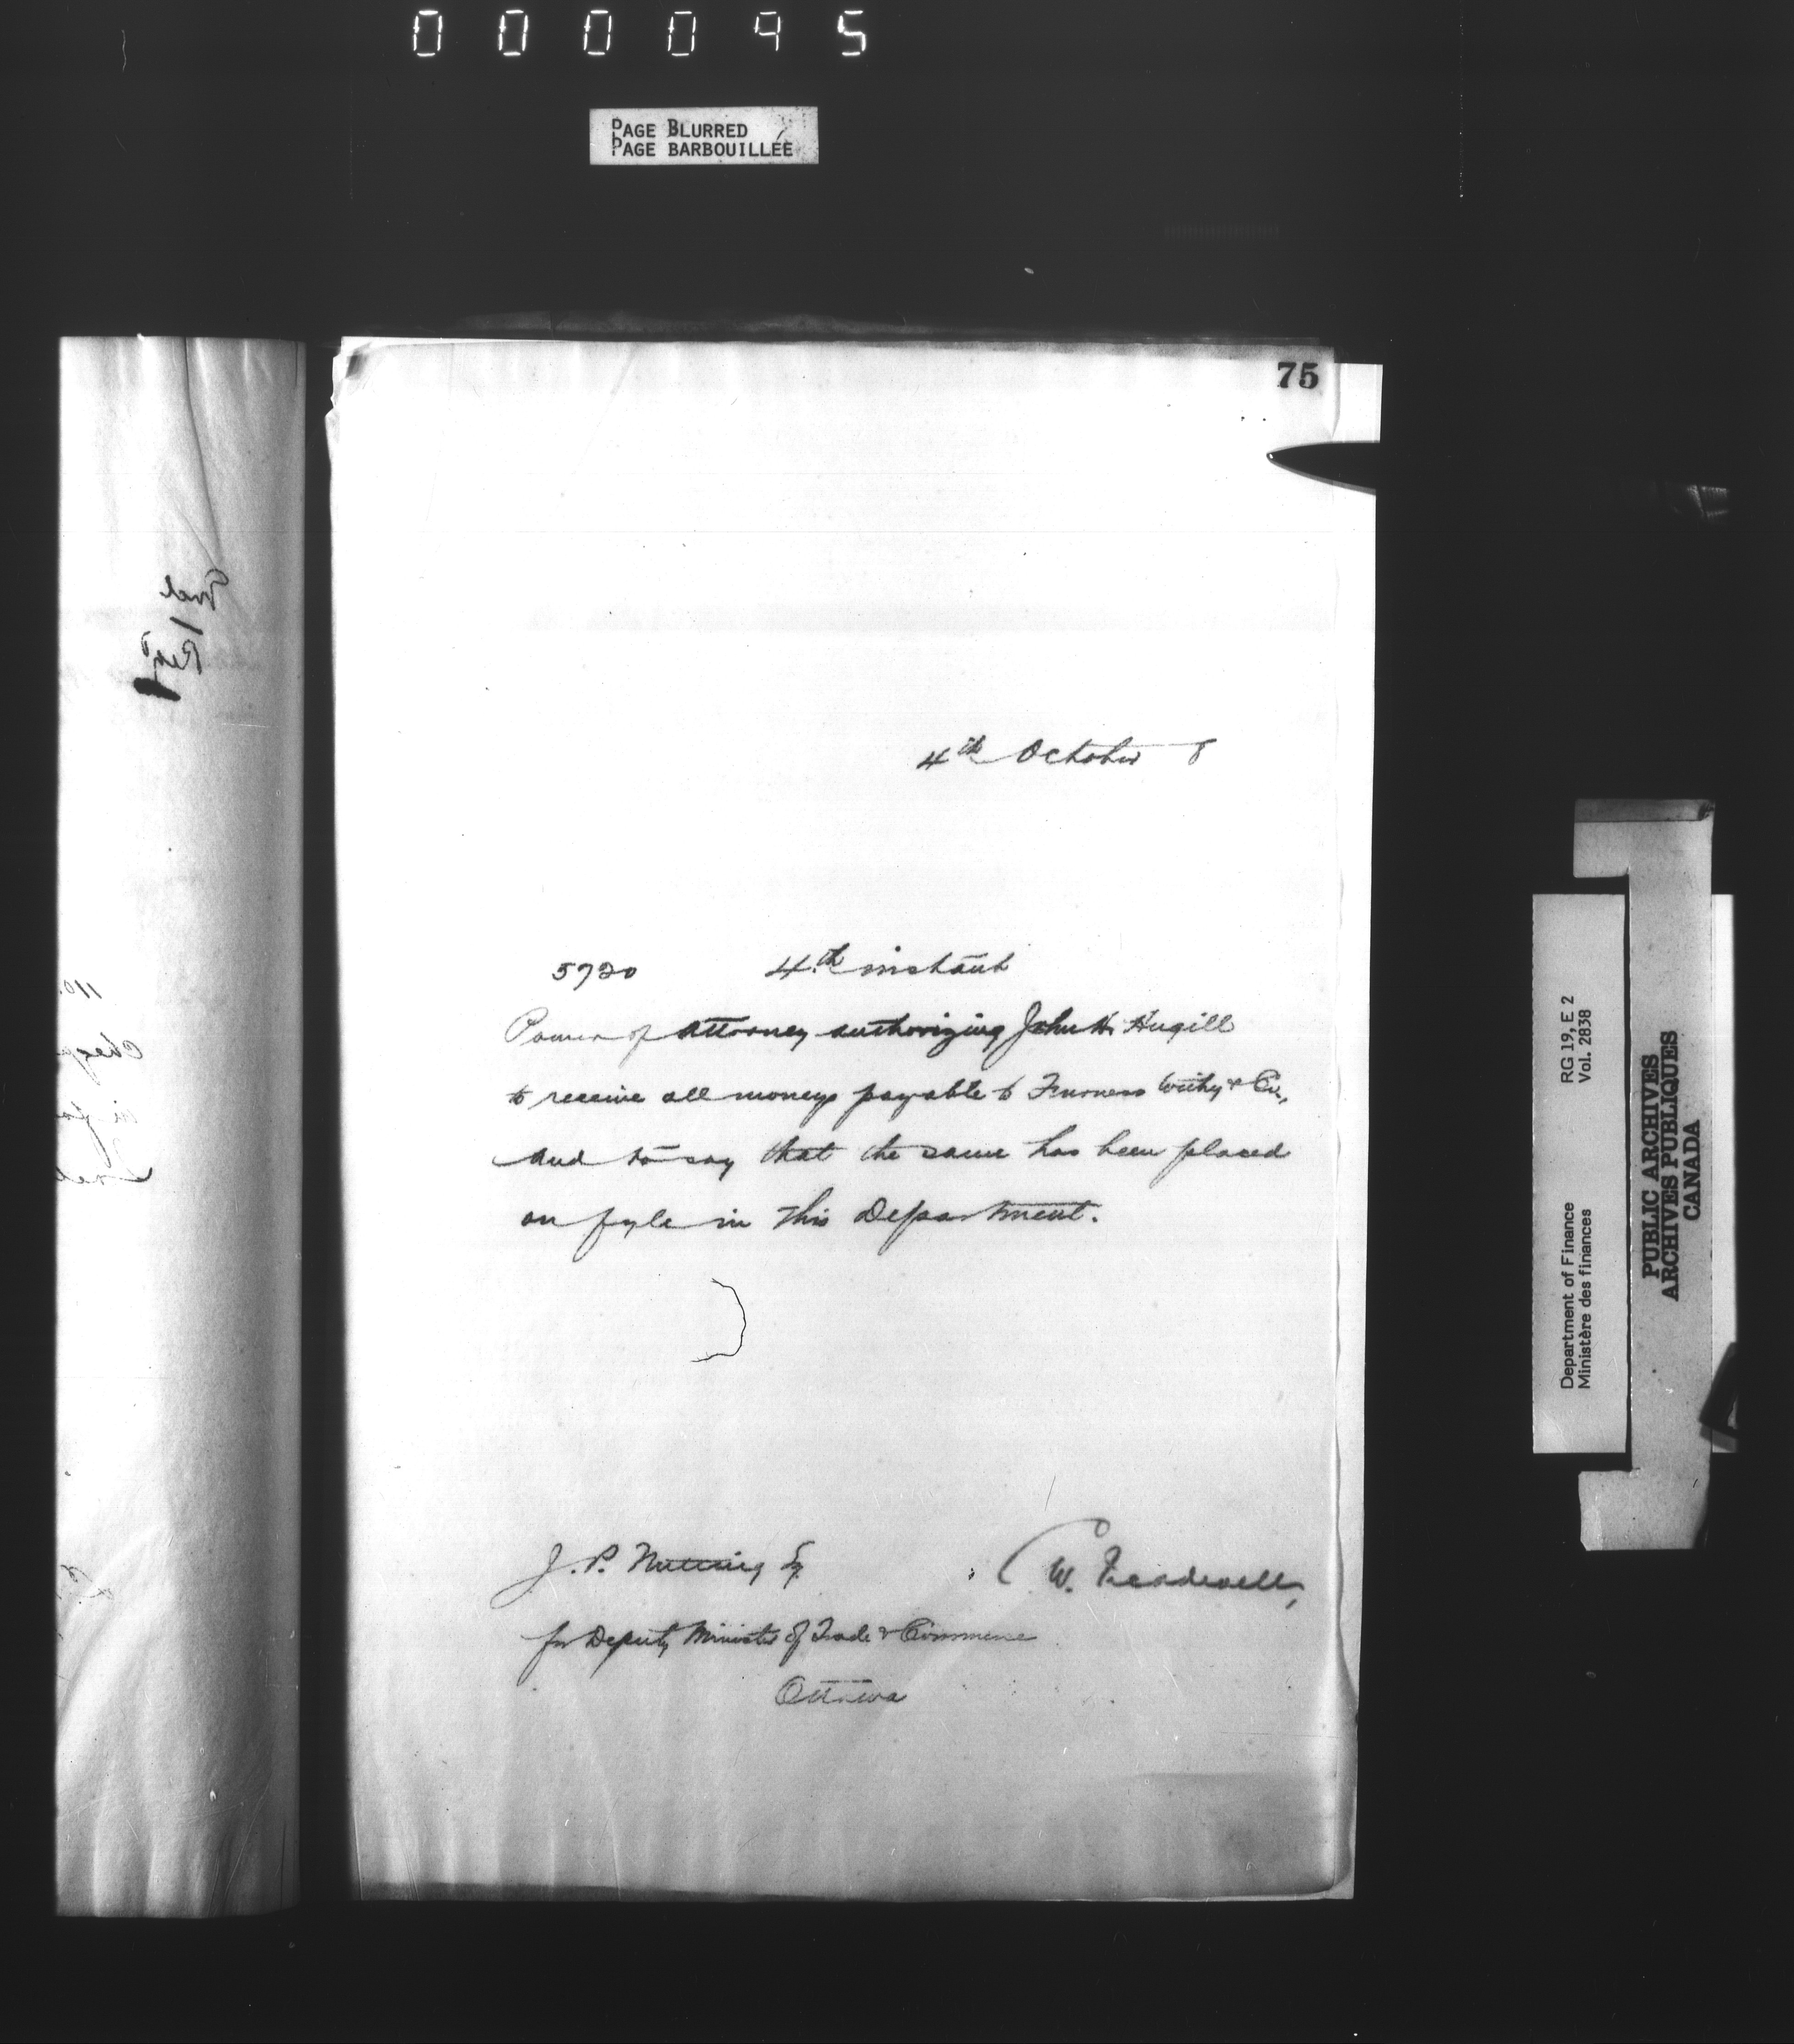 000095
PAGE BLURRED
PAGE BARBOUILLÉE
75
4th October 8
5720 4th instant
Power of Attorney authorizing John H. Hugill
to receive all moneys payable to Furness Withy & Co.,
and to say that the same has been placed
on fyle in this Department.
J. P. Nutting Esq
W. Treadwell,
for Deputy Minister of Trade & Commerce
Ottawa
Department of Finance RG 19, E 2
Ministère des finances Vol. 2838
PUBLIC ARCHIVES
ARCHIVES PUBLIQUES
CANADA